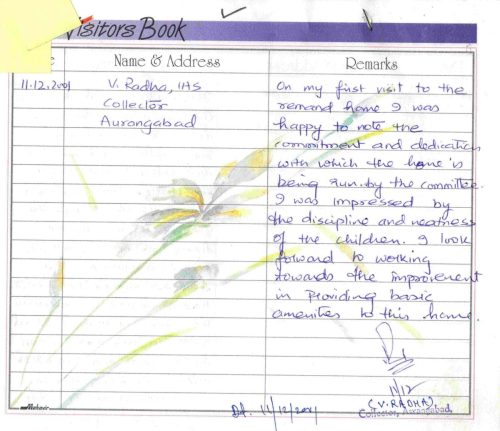 Visitors Book
Name & Address Remarks
11.12.2001 V. Radha, IAS
Collector
Aurangabad
On my first visit to the
remand home I was
happy to note the
commitment and dedication
with which the home is
being run by the committee.
I was impressed by
the discipline and neatness
of the children. I look
forward to working
towards the improvement
in providing basic
amenities to this home.
11/12
(V. RADHA)
Collector, Aurangabad,
Dt. 11/12/2001